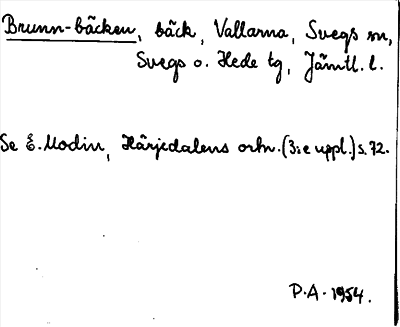 Brunn-bäcken, bäck, Vallarna, Svegs sn,
Svegs o. Hede tg, Jämtl. l.
Se E. Modin, Härjedalens ortn. (3:e uppl.) s. 72.
P.A. 1954.